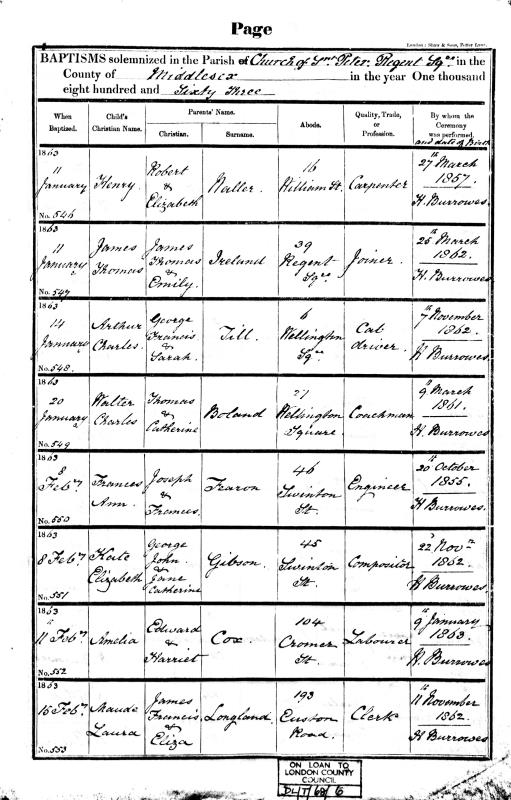 Page
London: Shaw & Sons, Fetter Lane.
BAPTISMS solemnized in the Parish of Church of St Peter Regent Sqre in the
County of Middlesex in the year One thousand
eight hundred and Sixty Three
When Baptized. Child's Christian Name. Parents' Name. Christian. Surname. Abode. Quality, Trade, or Profession. By whom the Ceremony was performed. and date of Birth
1863
11 January Henry. Robert & Elizabeth 16 William St. Carpenter 27th March 1857. H. Burrowes.
No. 546
1863
11 January James Thomas James Thomas & Emily. Ireland 39 Regent Sqre Joiner. 25th March 1862. H. Burrowes.
No. 547
1863
14 January Arthur Charles. George Francis & Sarah. Till. 6 Wellington Sqre Cab driver. 7th November 1862. H Burrowes.
No. 548.
1863
20 January Walter Charles Thomas & Catherine Boland 27 Wellington Square. Coachman 9th March 1861. H. Burrowes
No. 549
1863
8 Feby Frances Ann. Joseph & Frances. Fearon 46 Swinton St. Engineer 20th October 1855. H Burrowes.
No. 550
1863
8 Feby Kate Elizabeth George John. & Jane Catherine Gibson. 45 Swinton St. Compositor 22d Novr 1862. H Burrowes
No. 551
1863
11 Feby Amelia Edward & Harriet Cox 104 Cromer St. Labourer 9th January 1863. H. Burrowes
No. 552
1863
15 Feby Maude Laura James Francis & Eliza Longland. 193 Euston Road. Clerk 11th November 1862. H Burrowes
No. 553
ON LOAN TO
LONDON COUNTY
COUNCIL
DL/T/68/6